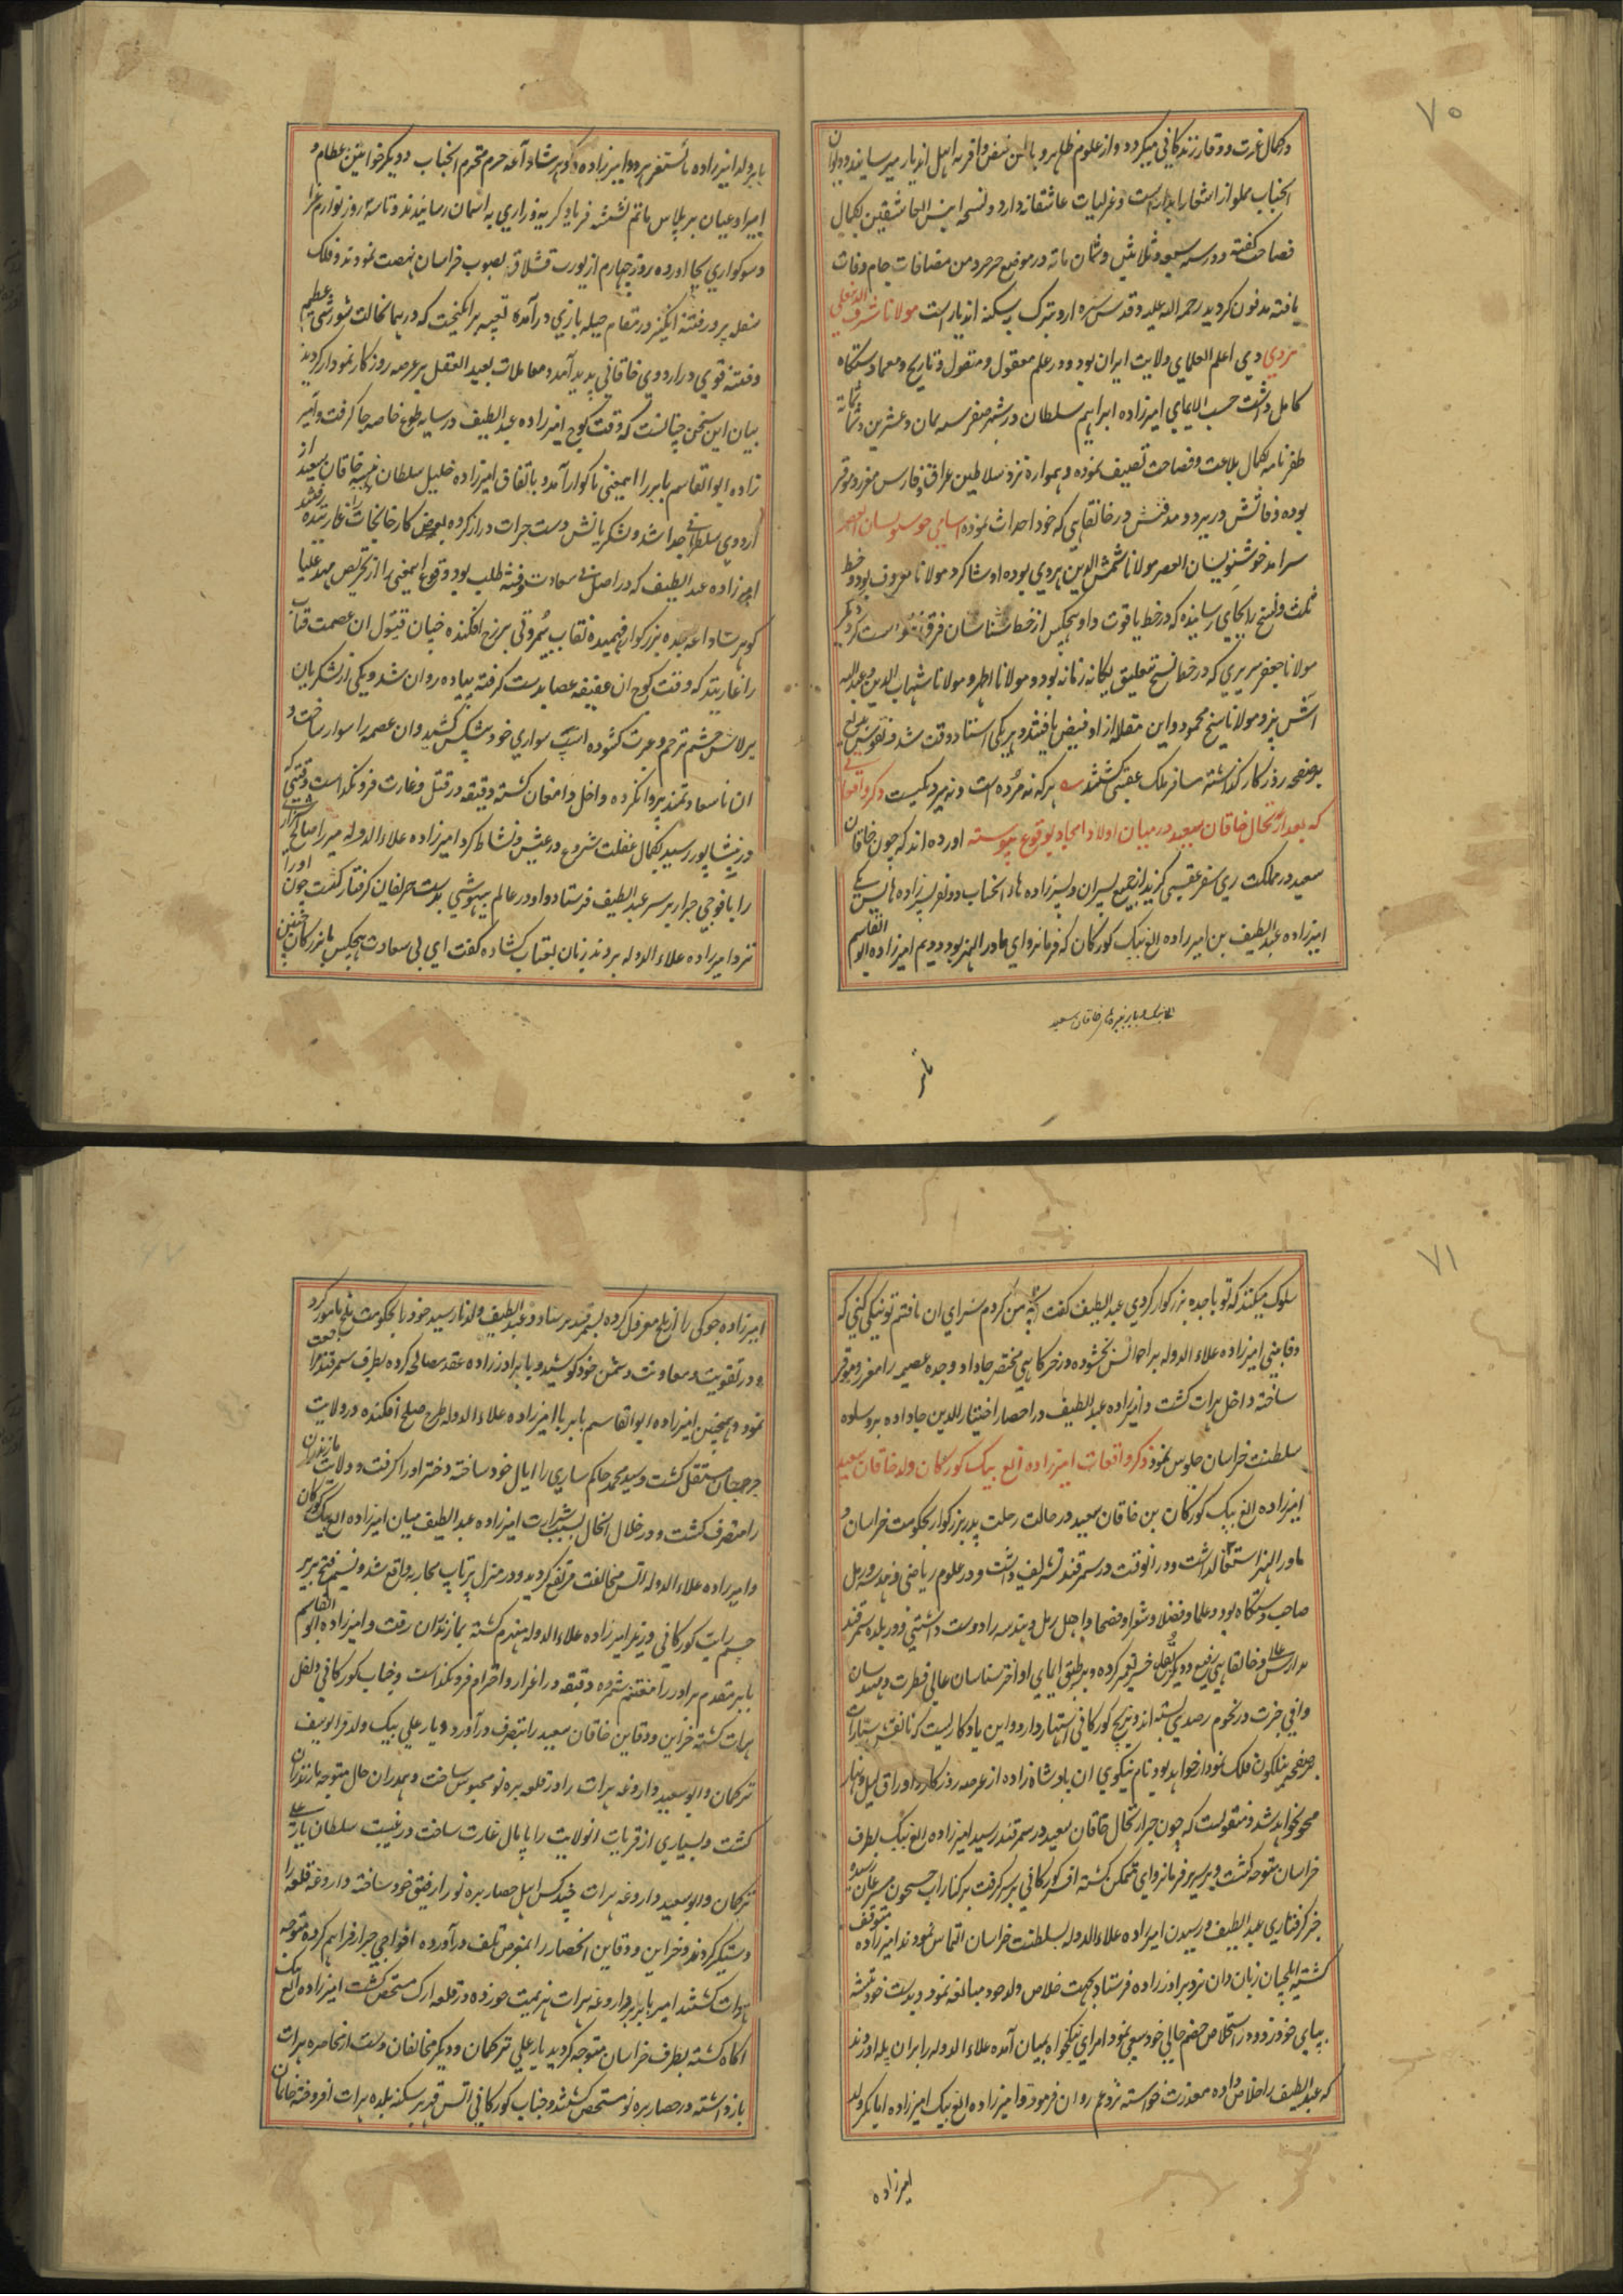 ۷۵
در کمال عزت و وقار زندگانی میکرد و از علوم ظاهر و باطن فیض وافر به اهل اندیار میرسانید و دیوان
انجناب مملو از اشعار ابدار است و غزلیات عاشقانه دارد و نسخه انیس العاشقین بکمال
فصاحت گفته و در سنه سبع و ثلاثین و ثمان مائه در موضع خرجرد من مضافات جام وفات
یافته مدفون کردید رحمه الله علیه و قدس سره ارو تبرک بسکنه اندیار است مولانا شرف الدین علی
یزدی وی اعلم العلمای ولایت ایران بود و در علم معقول و منقول و تاریخ و معما دستگاه
کامل داشت حسب الایمای امیرزاده ابراهیم سلطان در شهر صفر سنه ثمان و عشرین و ثمانمائة
ظفرنامه بکمال بلاغت و فصاحت تصنیف نموده و همواره نزد سلاطین عراق و فارس معزز و موقر
بوده وفاتش در یزد و مدفنش در خانقاهی که خود احداث نموده اسامی خوشنویسان العصر
سرامد خوشنویسان العصر مولانا شمس الدین هروی بوده او شاکرد مولانا معروف بود و خط
ثلث و نسخ را بجای رسانیده که در خط یاقوت و او هیچکس از خط شناسان فرق نتوانست کرد دیگر
مولانا جعفر تبریزی که در خط نسخ تعلیق یکانه زمانه بود و مولانا اظهر و مولانا شهاب الدین عبدالله
اش پز و مولانا شیخ محمود و این مقلا از او فیض یافتند و هر یکی استاد وقت شد
بر صفحه روزکار کذاشته مسافر ملک عقبی کشتند هر که نه مرده است و نه میرد یکیست ذکر واقعاتی
که بعد ارتحال خاقان سعید در میان اولاد امجاد بوقوع پیوسته اورده اند که چون خاقان
سعید در مملکت ری سفر عقبی کزید از جمیع پسران و پسرزاده ها در انجناب دو نفر پسرزاده یکی
امیرزاده عبداللطیف بن امیرزاده الغ بیک کورکان که فرمانروای ماورالنهر بود دویم امیرزاده ابوالقاسم
خاقان سعید
بابر ولد امیرزاده بایسنغر هر دو امیرزاده و کوهرشاد آغه حرم محترم انجناب و دیگر خواتین عظام و
امرا و اعیان بر پلاس ماتم نشسته فریاد و کریه و زاری به اسمان رسانیدند و تا سه روز لوازم عزا
و سوکواری بجا اورده روز چهارم از یورت قشلاق بصوب خراسان نهضت نمودند و فلک
شعله پرور فتنه انکیز در مقام حیله بازی درآمده لعبی برانکیخت که در همانحالت شورش عظیم
و فتنه قوی در اردوی خاقانی پدید آمد و معاملات بعید العقل بر عرصه روز کار نمودار کردید
بیان این سخن چنانست که وقت کوچ امیرزاده عبداللطیف در سایه طوغ خاصه جا گرفت و امیر
زاده ابوالقاسم بابر را اینمعنی ناکوار آمد و باتفاق امیرزاده خلیل سلطان نبیره خاقان سعید از
اردوی سلطانی جدا شد و لشکریانش دست جرات دراز کرده بعضی کارخانجات را غارتیده رفتند
امیرزاده عبداللطیف که در اصل بی سعادت و فتنه طلب بود وقوع اینمعنی را از تحریص مهد علیا
کوهرشاد آغه جده بزرگوار فهمیده نقاب بیمروتی بر رخ افکنده خیان قیتول ان عصمت قباب
را غارتید که وقت کوچ ان عفیفه عصا بدست کرفته پیاده روان شد و یکی از لشکریان
برلاس چشم ترحم و عبرت کشوده اسپ سواری خود پیشکش کشید و ان عصمه را سوار ساخت و
ان ناسعادتمند پروا نکرده و اخل دامغان کشته دقیقه در قتل و غارت فرو نگذاست وقتی که
در نیشاپور رسید بکمال غفلت شروع در عیش و نشاط کرد امیرزاده علاءالدوله میرزا صالح
را با فوجی جرار بر سر عبداللطیف فرستاد و او در عالم بیهوشی بدست حریفان گرفتار کشت چون او را
نزد امیرزاده علاءالدوله بردند زبان بعتاب کشاده گفت ای بی سعادت هیچکس با بزرگان چنین
۷۱
سلوک میکند که تو با جده بزرکوار کردی عبداللطیف گفت آنچه من کردم سزای ان یافتم تو نیکی کنی که
دقابنی امیرزاده علاءالدوله بر احوالش بخشوده در خرگاهی مختصر جا داد و جده عصیمه را معزز و موقر
ساخته داخل هرات گشت و امیرزاده عبداللطیف در احصار اختیارالدین جا داده بر وساده
سلطنت خراسان جلوس نمود ذکر واقعات امیرزاده الغ بیک کورکان ولد خاقان سعید
امیرزاده الغ بیک کورکان بن خاقان سعید در حالت رحلت پدر بزرگوار بحکومت خراسان و
ماورالنهر استقلال داشت و در انوقت در سمرقند تشریف داشت و در علوم ریاضی و هندسه و رمل
صاحب دستگاه بود و علما و فضلا و شعرا و فصحا و اهل رمل و هندسه را دوست داشتی و در بلده سمرقند
مدارس عالی و خانقاهی رفیع و دیگر بقاع خیر تعمیر کرده و بر طبق ایمای او اخترشناسان عالی فطرت و مهندسان
وافی خبرت در نجوم رصدی بسته اند و بزیچ کورکانی اشتهار دارد و این یادکاریست که تا نقش سیارات
بر صفحه نیلکون فلک نمودار خواهد بود نام نیکوی ان پادشاه زاده از عرصه روزکار و اوراق لیل و نهار
محو نخواهد شد و منقولست که چون خبر ارتحال خاقان سعید در سمرقند رسید امیرزاده الغ بیک بطرف
خراسان متوجه گشت و بر سریر فرمانروای متمکن گشته افسر کورکانی بر سر گرفت بر کنار اب جیحون مسرعان رسیده
خبر گرفتاری عبداللطیف و رسیدن امیرزاده علاءالدوله بسلطنت خراسان التماس نمودند امیرزاده متوقف
گشته ایلچیان زبان دان نزد برادرزاده فرستاد بجهت خلاص ولد خود مبالغه نمود و بدست خود تیشه
بپای خود زد و در استخلاص خصم جانی خود سعی نمود امرای نیکخواه بمیان آمده علاءالدوله را بران پله اوردند
که عبداللطیف را خلاص داده معذرت خواسته نزد عم روان فرمود و امیرزاده الغ بیک امیرزاده ابابکر ولد
امیرزاده
امیرزاده جوکی را از بلخ معزول کرده بسمرقند فرستاد و عبداللطیف ولد نارسید خود را بحکومت بلخ مامور کرد
و در تقویت و معاونت دشمن خود کوشید و با برادرزاده عقد مصالح کرده بطرف سمرقند مراجعت
نمود و همچنین امیرزاده ابوالقاسم بابر با امیرزاده علاءالدوله طرح صلح افکنده در ولایت
جرجان مستقل گشت و سید محمد حاکم ساری را ایل خود ساخته دختر او را گرفت و ولایت مازندران
را متصرف گشت و در خلال انحال بسبب شرارت امیرزاده عبداللطیف میان امیرزاده الغ بیک کورکان
و امیرزاده علاءالدوله اتش مخالفت مرتفع گردید و در منزل ترناب محاربه واقع شد و نسیم فتح بر پر
چم رایت کورکانی وزید امیرزاده علاءالدوله منهزم گشته بمازندران رفت و امیرزاده ابوالقاسم
بابر مقدم برادر را مغتنم شمرده دقیقه در اعزاز و اکرام فرو نگذاست و جناب کورکانی داخل
هرات گشته خزاین و دفاین خاقان سعید را بتصرف درآورد و یار علی بیک ولد قرا یوسف
ترکمان و ابوسعید داروغه هرات را در قلعه نیره تو محبوس ساخت و همدران حال متوجه مازندران
گشت و بسیاری از قریات انولایت را پایمال غارت ساخت در غیبت سلطان یار علی
ترکمان و ابوسعید داروغه هرات چند کس اهل حصار نیره تو را رفیق خود ساخته داروغه قلعه را
دستگیر کردند و خزاین و دفاین انحصار را بمعرض تلف درآورده افواجی جرار فراهم کرده متوجه
هرات گشتند امیر بابر داروغه هرات هزیمت خورده در قلعه ارک متحصن گشت امیرزاده الغ بیک
اگاه گشته بطرف خراسان متوجه گردید یار علی ترکمان و دیگر مخالفان دست از محاصره هرات
بازداشته در حصار نیره تو متحصن گشتند و جناب کورکانی اتش قهر بر سکنه بلده هرات افروخته خانمان